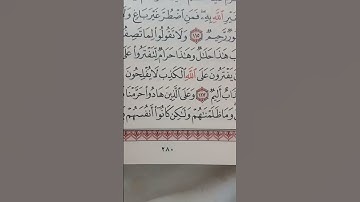 ـيْرِ اللَّهِ بِهِ فَمَنِ اضْطُرَّ غَيْرَ بَاغٍ وَلَا
رٌ رَحِيمٌ ١١٥ وَلَا تَقُولُوا لِمَا تَصِفُ
هَٰذَا حَلَالٌ وَهَٰذَا حَرَامٌ لِتَفْتَرُوا عَلَى
يَفْتَرُونَ عَلَى اللَّهِ الْكَذِبَ لَا يُفْلِحُونَ
ذَابٌ أَلِيمٌ ١١٧ وَعَلَى الَّذِينَ هَادُوا حَرَّمْنَا
وَمَا ظَلَمْنَاهُمْ وَلَٰكِنْ كَانُوا أَنْفُسَهُمْ
٢٨٠